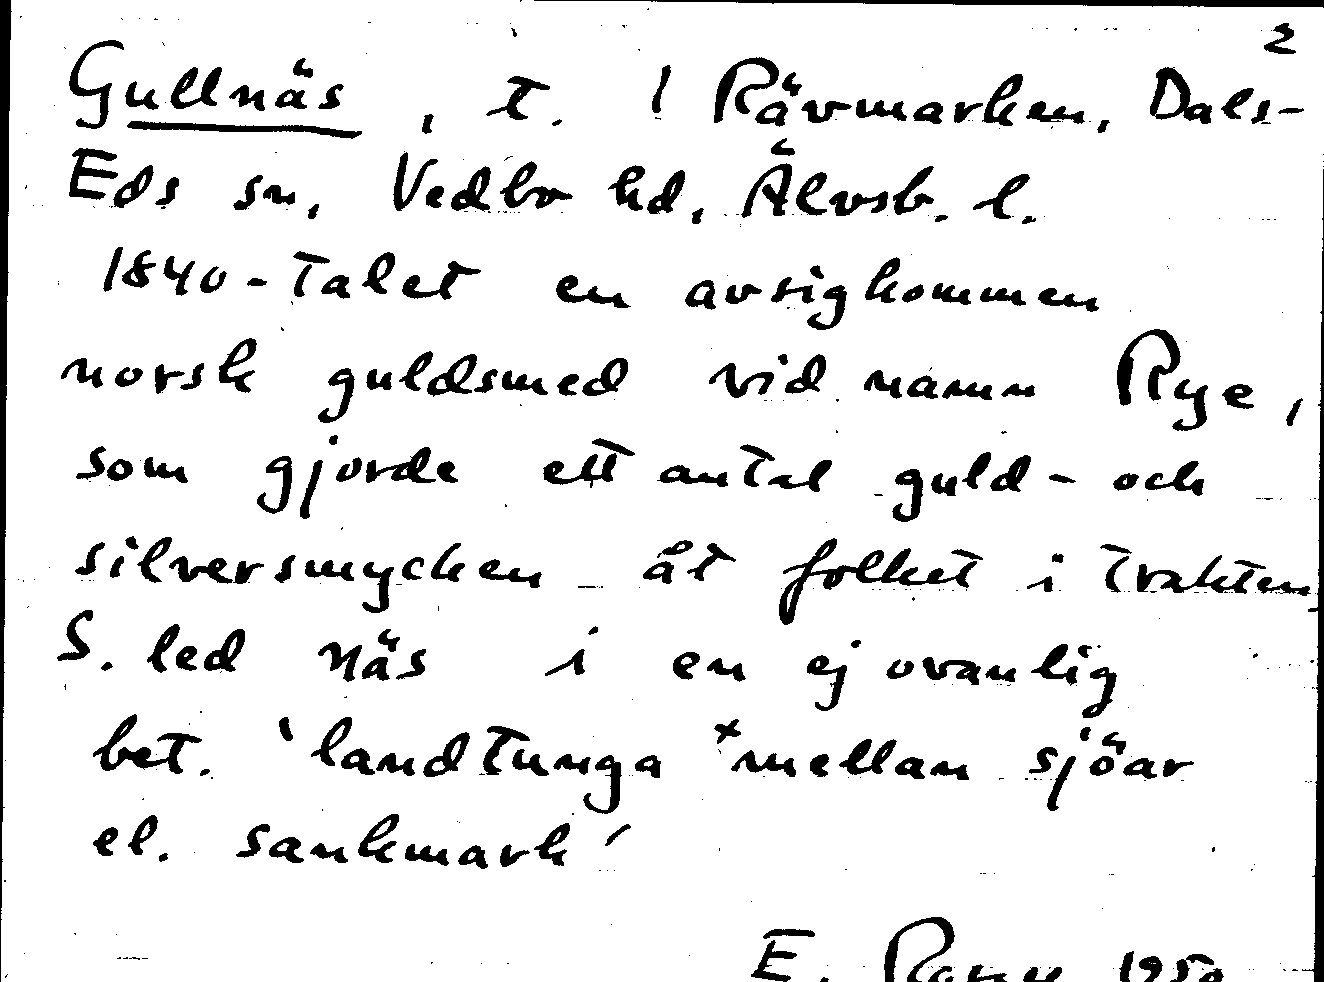 2
Gullnäs, t. / Rävmarken, Dals-
Eds sn, Vedbo hd, Älvsb. l.
1840-talet en avsigkommen
norsk guldsmed vid namn Rye,
som gjorde ett antal guld- och
silversmycken åt folket i trakten,
S. led näs i en ej ovanlig
bet. 'landtunga mellan sjöar
el. sankmark'
E. 1950